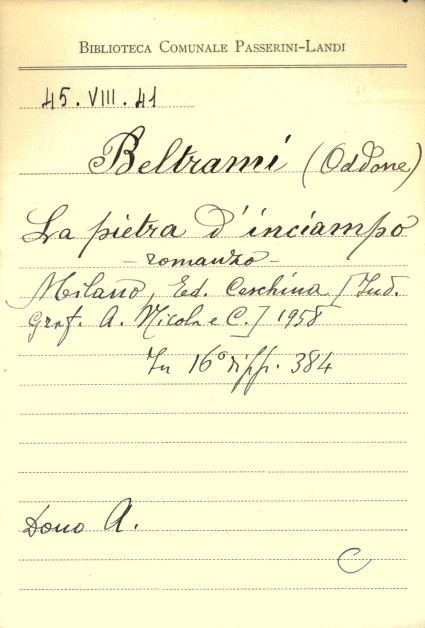 BIBLIOTECA COMUNALE PASSERINI-LANDI
45. VIII. 41
Beltrami (Oddone)
La pietra d'inciampo
- romanzo -
Milano, Ed. Ceschina [Ind.
Graf. A. Nicola e C.] 1958
In 16° di pp. 384
Dono A.
C